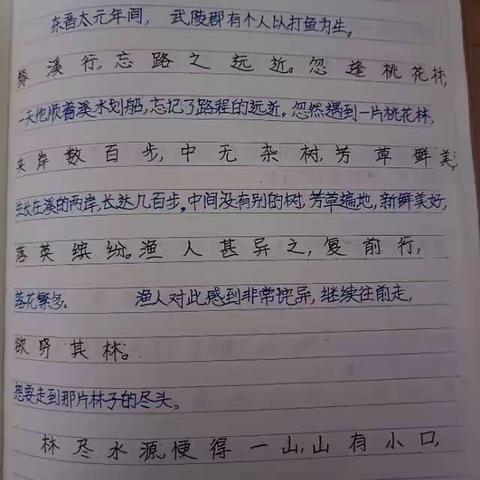 东晋太元年间, 武陵郡有个人以打鱼为生。
缘溪行,忘路之远近。忽逢桃花林,
一天他顺着溪水划船,忘记了路程的远近。忽然遇到一片桃花林,
夹岸数百步,中无杂树,芳草鲜美,
生长在溪的两岸,长达几百步。中间没有别的树,芳草遍地,新鲜美好,
落英缤纷。渔人甚异之,复前行,
落花繁多。 渔人对此感到非常诧异,继续往前走,
欲穷其林。
想要走到那片林子的尽头。
林尽水源,便得一山,山有小口,